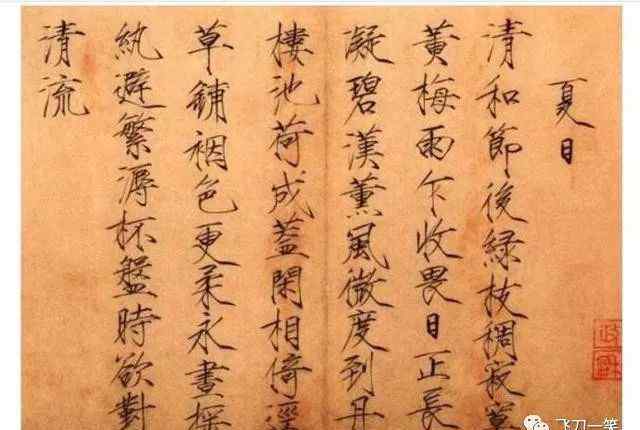 夏日
清和節後緑枝稠寂寞
黃梅雨乍收畏日正長
凝碧漢薰風微度到丹
樓池荷成蓋閑相倚徑
草鋪裀色更柔永晝搖
紈避繁溽杯盤時欲對
清流
飞刀一笔